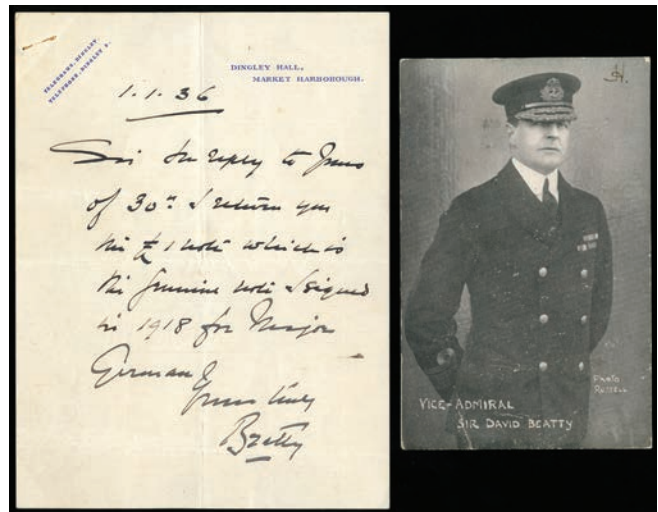 TELEGRAMS, DINGLEY.
TELEPHONE, DINGLEY 2.
DINGLEY HALL,
MARKET HARBOROUGH.
1.1.36
Sir In reply to Yours
of 30th I return you
the £1 note which is
the genuine note I signed
in 1918 for Major
German
Yours truly
Beatty
VICE-ADMIRAL
SIR DAVID BEATTY
PHOTO
RUSSELL